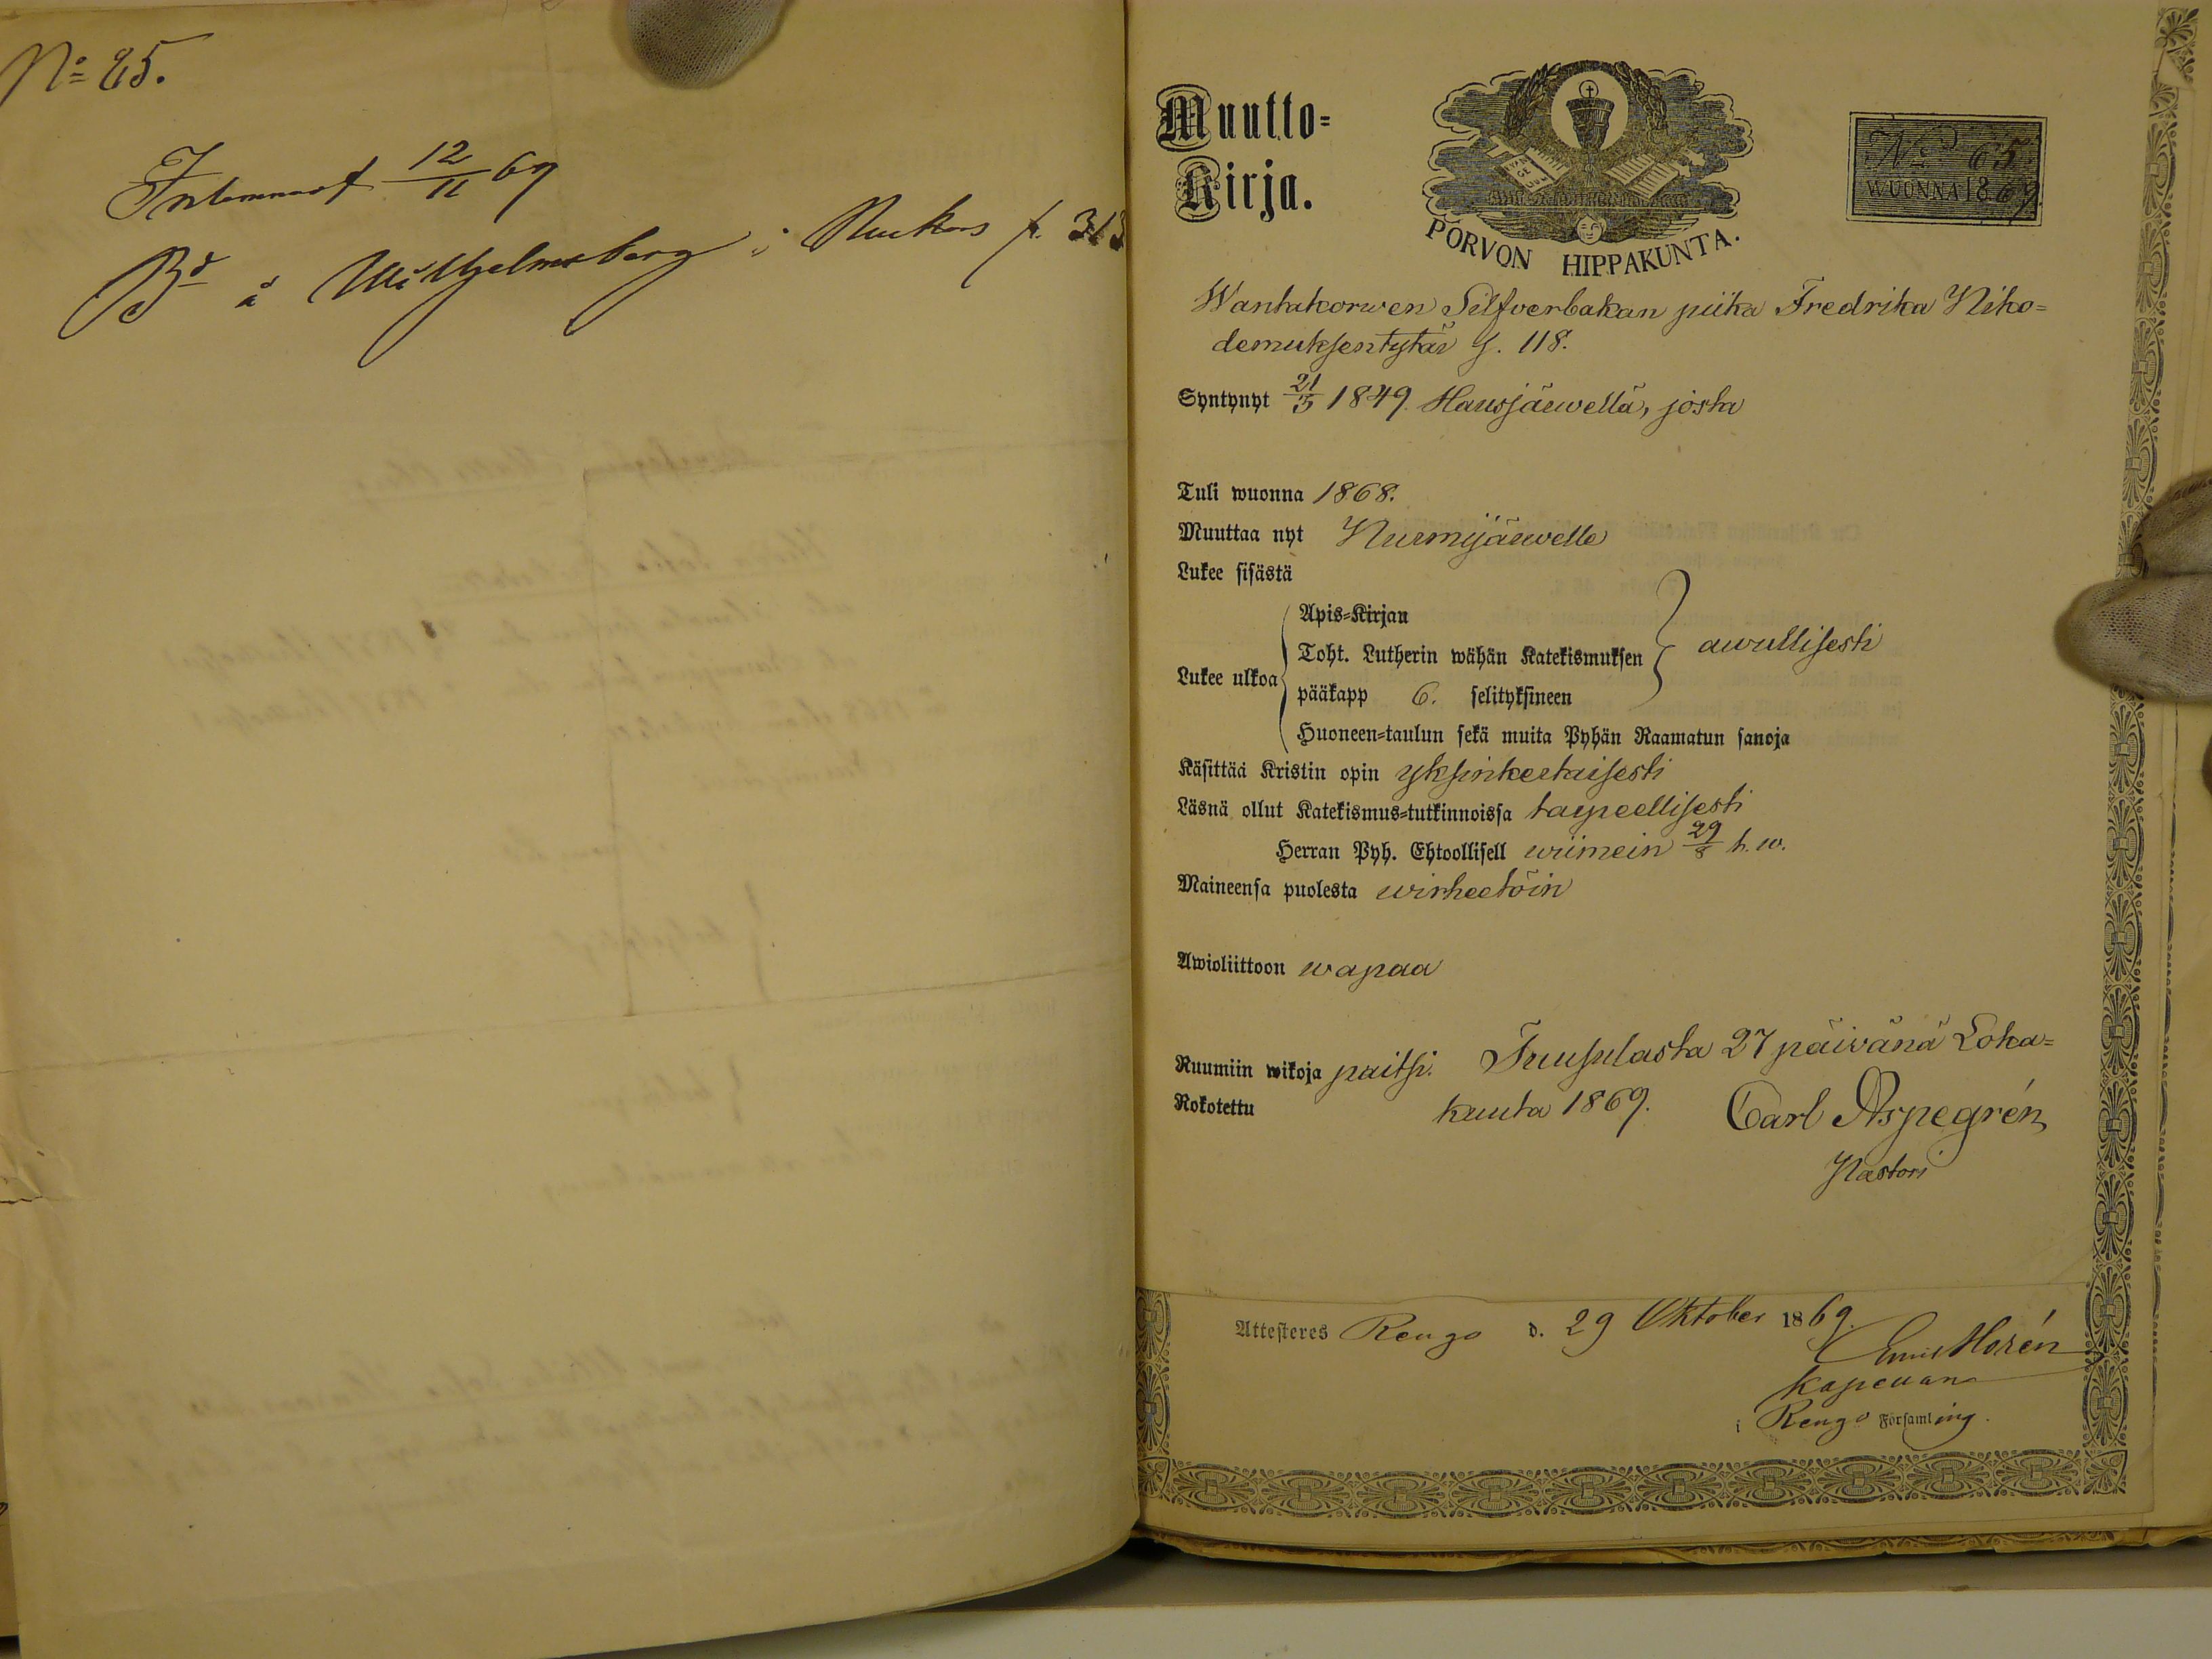 No 85.
Inlemnadt 12/11 69
Bd å Wilhelmsberg i Nukars p. 313
Muutto=
Kirja.
PORVON HIPPAKUNTA.
No 65
WUONNA 1869
Wantakorwen Silfverbakan piika Fredrika Niko=
demuksentytär S. 118.
Syntynyt 21/3 1849. Hausjärwellä, josta
Tuli wuonna 1868.
Muuttaa nyt Nurmijärwelle
Lukee sisästä
Apis=Kirjan
Toht. Lutherin wähän Katekismuksen
Lukee ulkoa
awullisesti
pääkapp 6. selityksineen
Huoneen=taulun sekä muita Pyhän Raamatun sanoja
Käsittää Kristin opin yksinkertaisesti
Läsnä ollut Katekismus=tutkinnoissa tarpeellisesti
Herran Pyh. Ehtoollisell wiimein 29/8 t. w.
Maineensa puolesta wirheetöin
Awioliittoon wapaa
Ruumiin wikoja paitsi. Tuusulasta 27 päivänä Loka=
Rokotettu kuuta 1869. Carl Aspegrén
Pastori
Attesteres Rengo d. 29 Oktober 1869.
Emil Horén
Kapellan
i Rengo Församling.